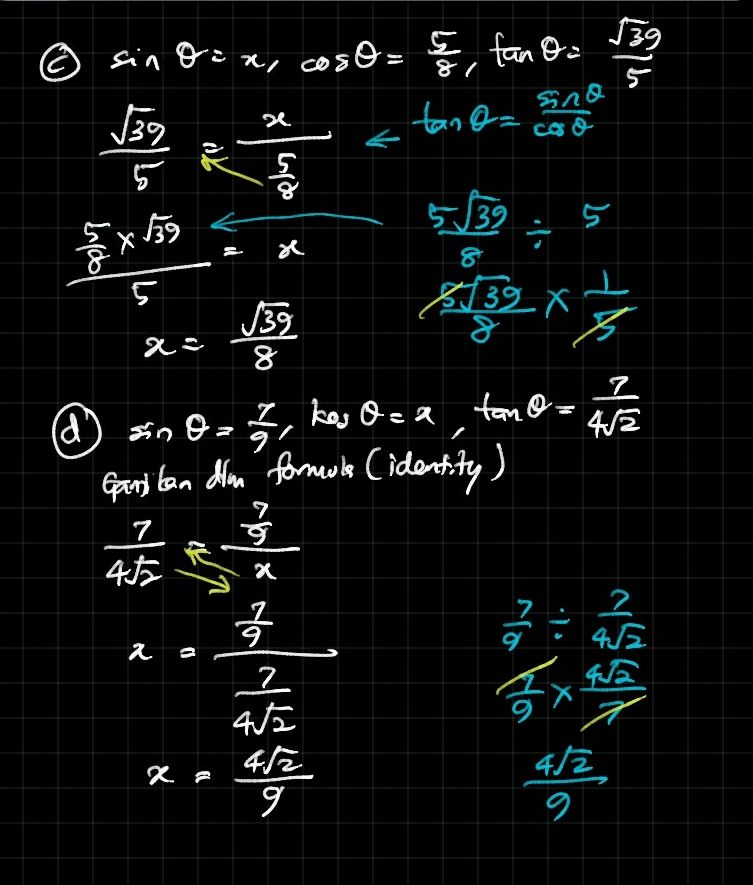 (c) sin θ = x, cos θ = 5/8, tan θ = √39/5
√39/5 = x/(5/8) ← tan θ = sin θ/cos θ
(5/8 × √39)/5 = x ← 5√39/8 ÷ 5
5√39/8 × 1/5
x = √39/8
(d) sin θ = 7/9, kos θ = x, tan θ = 7/4√2
Gantikan dlm formula (identity)
7/4√2 = (7/9)/x
x = (7/9)/(7/4√2)
7/9 ÷ 7/4√2
7/9 × 4√2/7
x = 4√2/9
4√2/9